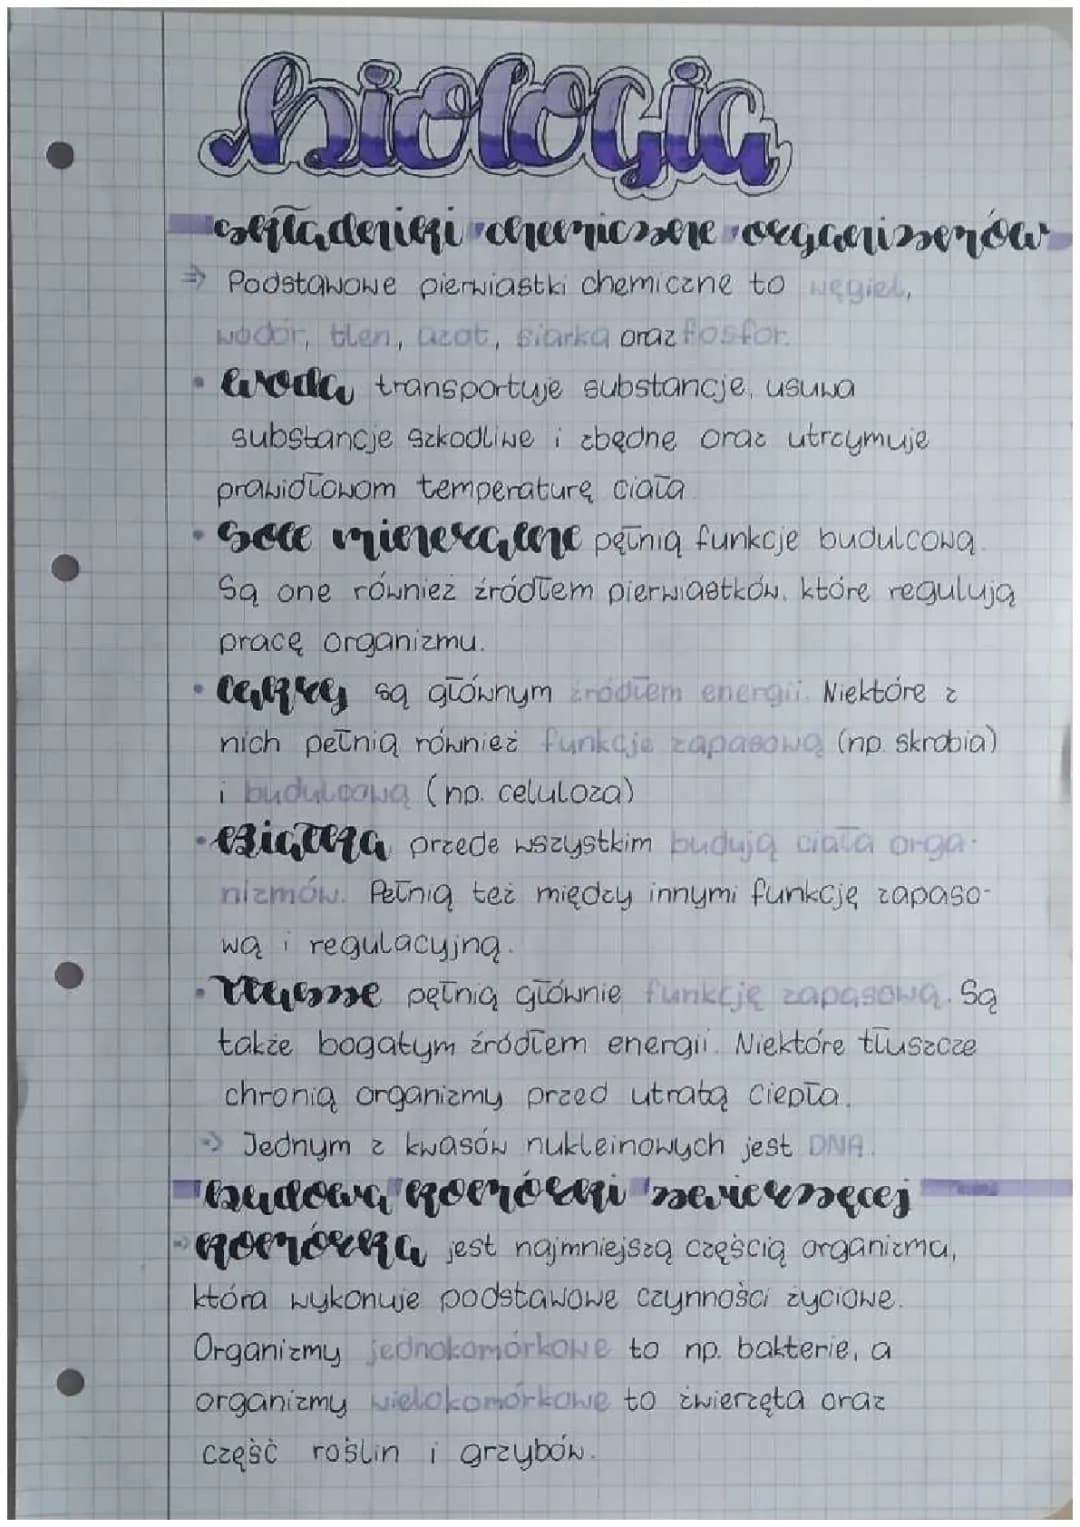 biologia
składniki chemiczne organizmów
⇒ Podstawowe pierwiastki chemiczne to węgiel,
wodór, tlen, azot, siarka oraz fosfor.
• woda transportuje substancje, usuwa
substancje szkodliwe i zbędne oraz utrzymuje
prawidłowom temperaturę ciała
• sole mineralne pełnią funkcje budulcową.
Są one również źródłem pierwiastków, które regulują
pracę organizmu.
• cukry są głównym źródłem energii. Niektóre z
nich pełnią również funkcje zapasową (np. skrobia)
i budulcową (np. celuloza)
• białka przede wszystkim budują ciała orga-
nizmów. Pełnią też między innymi funkcję zapaso-
wą i regulacyjną.
• pełnią głównie funkcję zapasową. Są
także bogatym źródłem energii. Niektóre tłuszcze
chronią organizmy przed utratą ciepła.
⇒ Jednym z kwasów nukleinowych jest DNA.
budowa komórki zwierzęcej
⇒ komórka jest najmniejszą częścią organizma,
która wykonuje podstawowe czynności życiowe.
Organizmy jednokomórkowe to np. bakterie, a
organizmy wielokomórkowe to zwierzęta oraz
część roślin i grzybów.